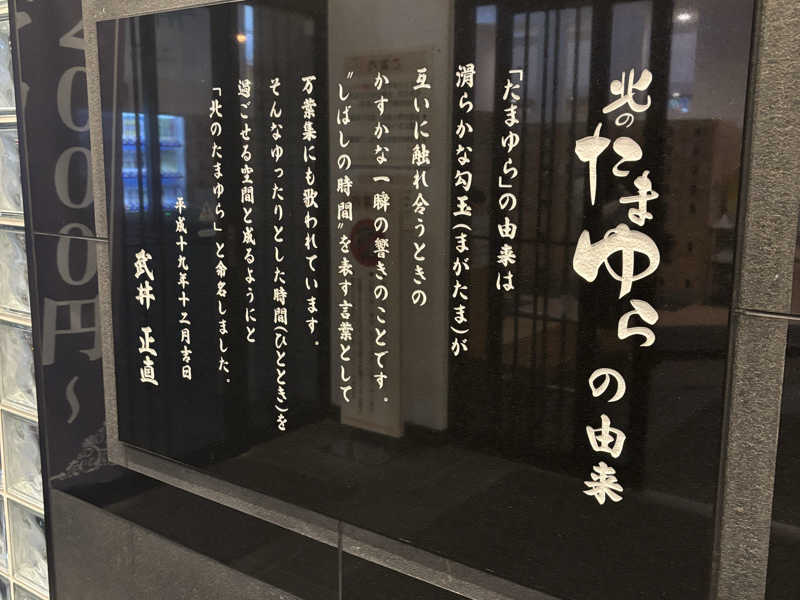 北のたまゆらの由来
「たまゆら」の由来は
滑らかな勾玉(まがたま)が
互いに触れ合うときの
かすかな一瞬の響きのことです。
〝しばしの時間〟を表す言葉として
万葉集にも歌われています。
そんなゆったりとした時間(ひととき)を
過ごせる空間と成るようにと
「北のたまゆら」と命名しました。
平成十九年十二月吉日
武井 正直
2000円～